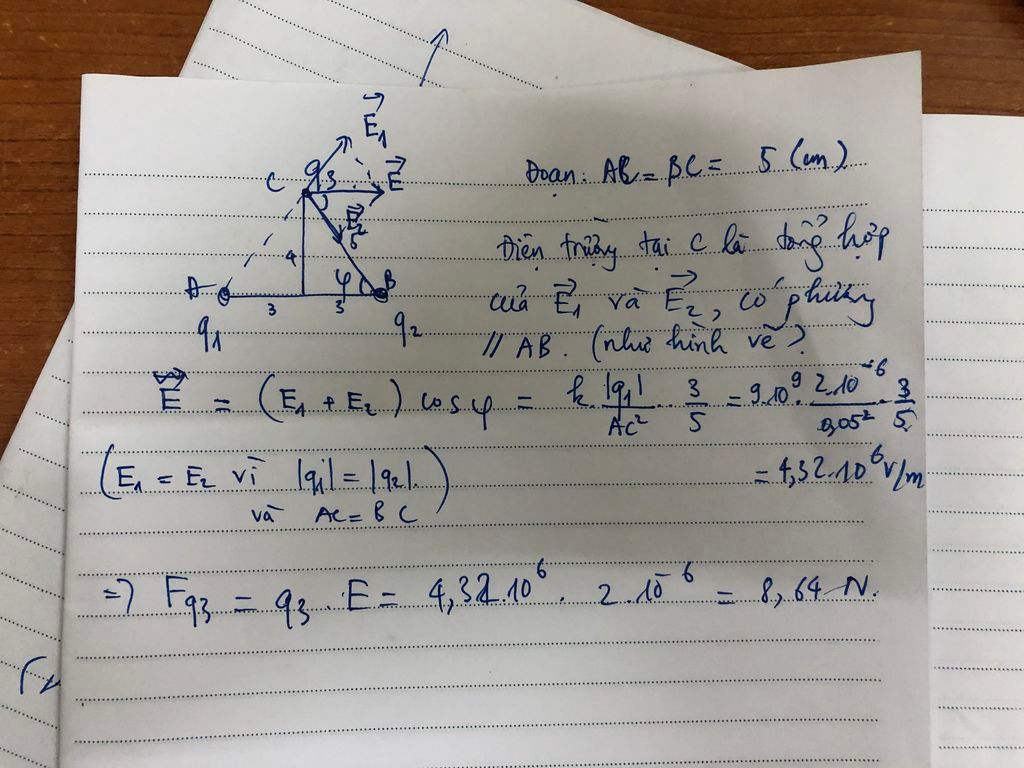 E₁
C q3 E
E₂
5
4
A φ B
3 3
q₁ q₂
Đoạn: AC = BC = 5 (cm)
Điện trường tại C là tổng hợp
của E₁ và E₂, có phương
// AB. (như hình vẽ).
E = (E₁ + E₂) cos φ = k. |q₁|/AC² . 3/5 = 9.10⁹. 2.10⁻⁶/0,05² . 3/5
(E₁ = E₂ vì |q₁| = |q₂|. = 4,32.10⁶ V/m
và AC = BC)
=> Fq3 = q3 . E = 4,32.10⁶. 2.10⁻⁶ = 8,64 N.